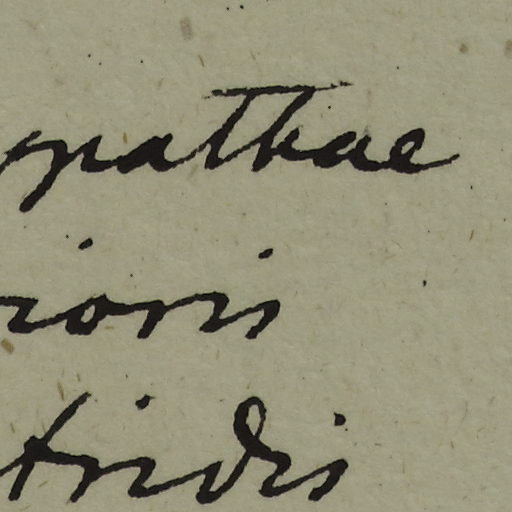 ypathae
rioris
tridis